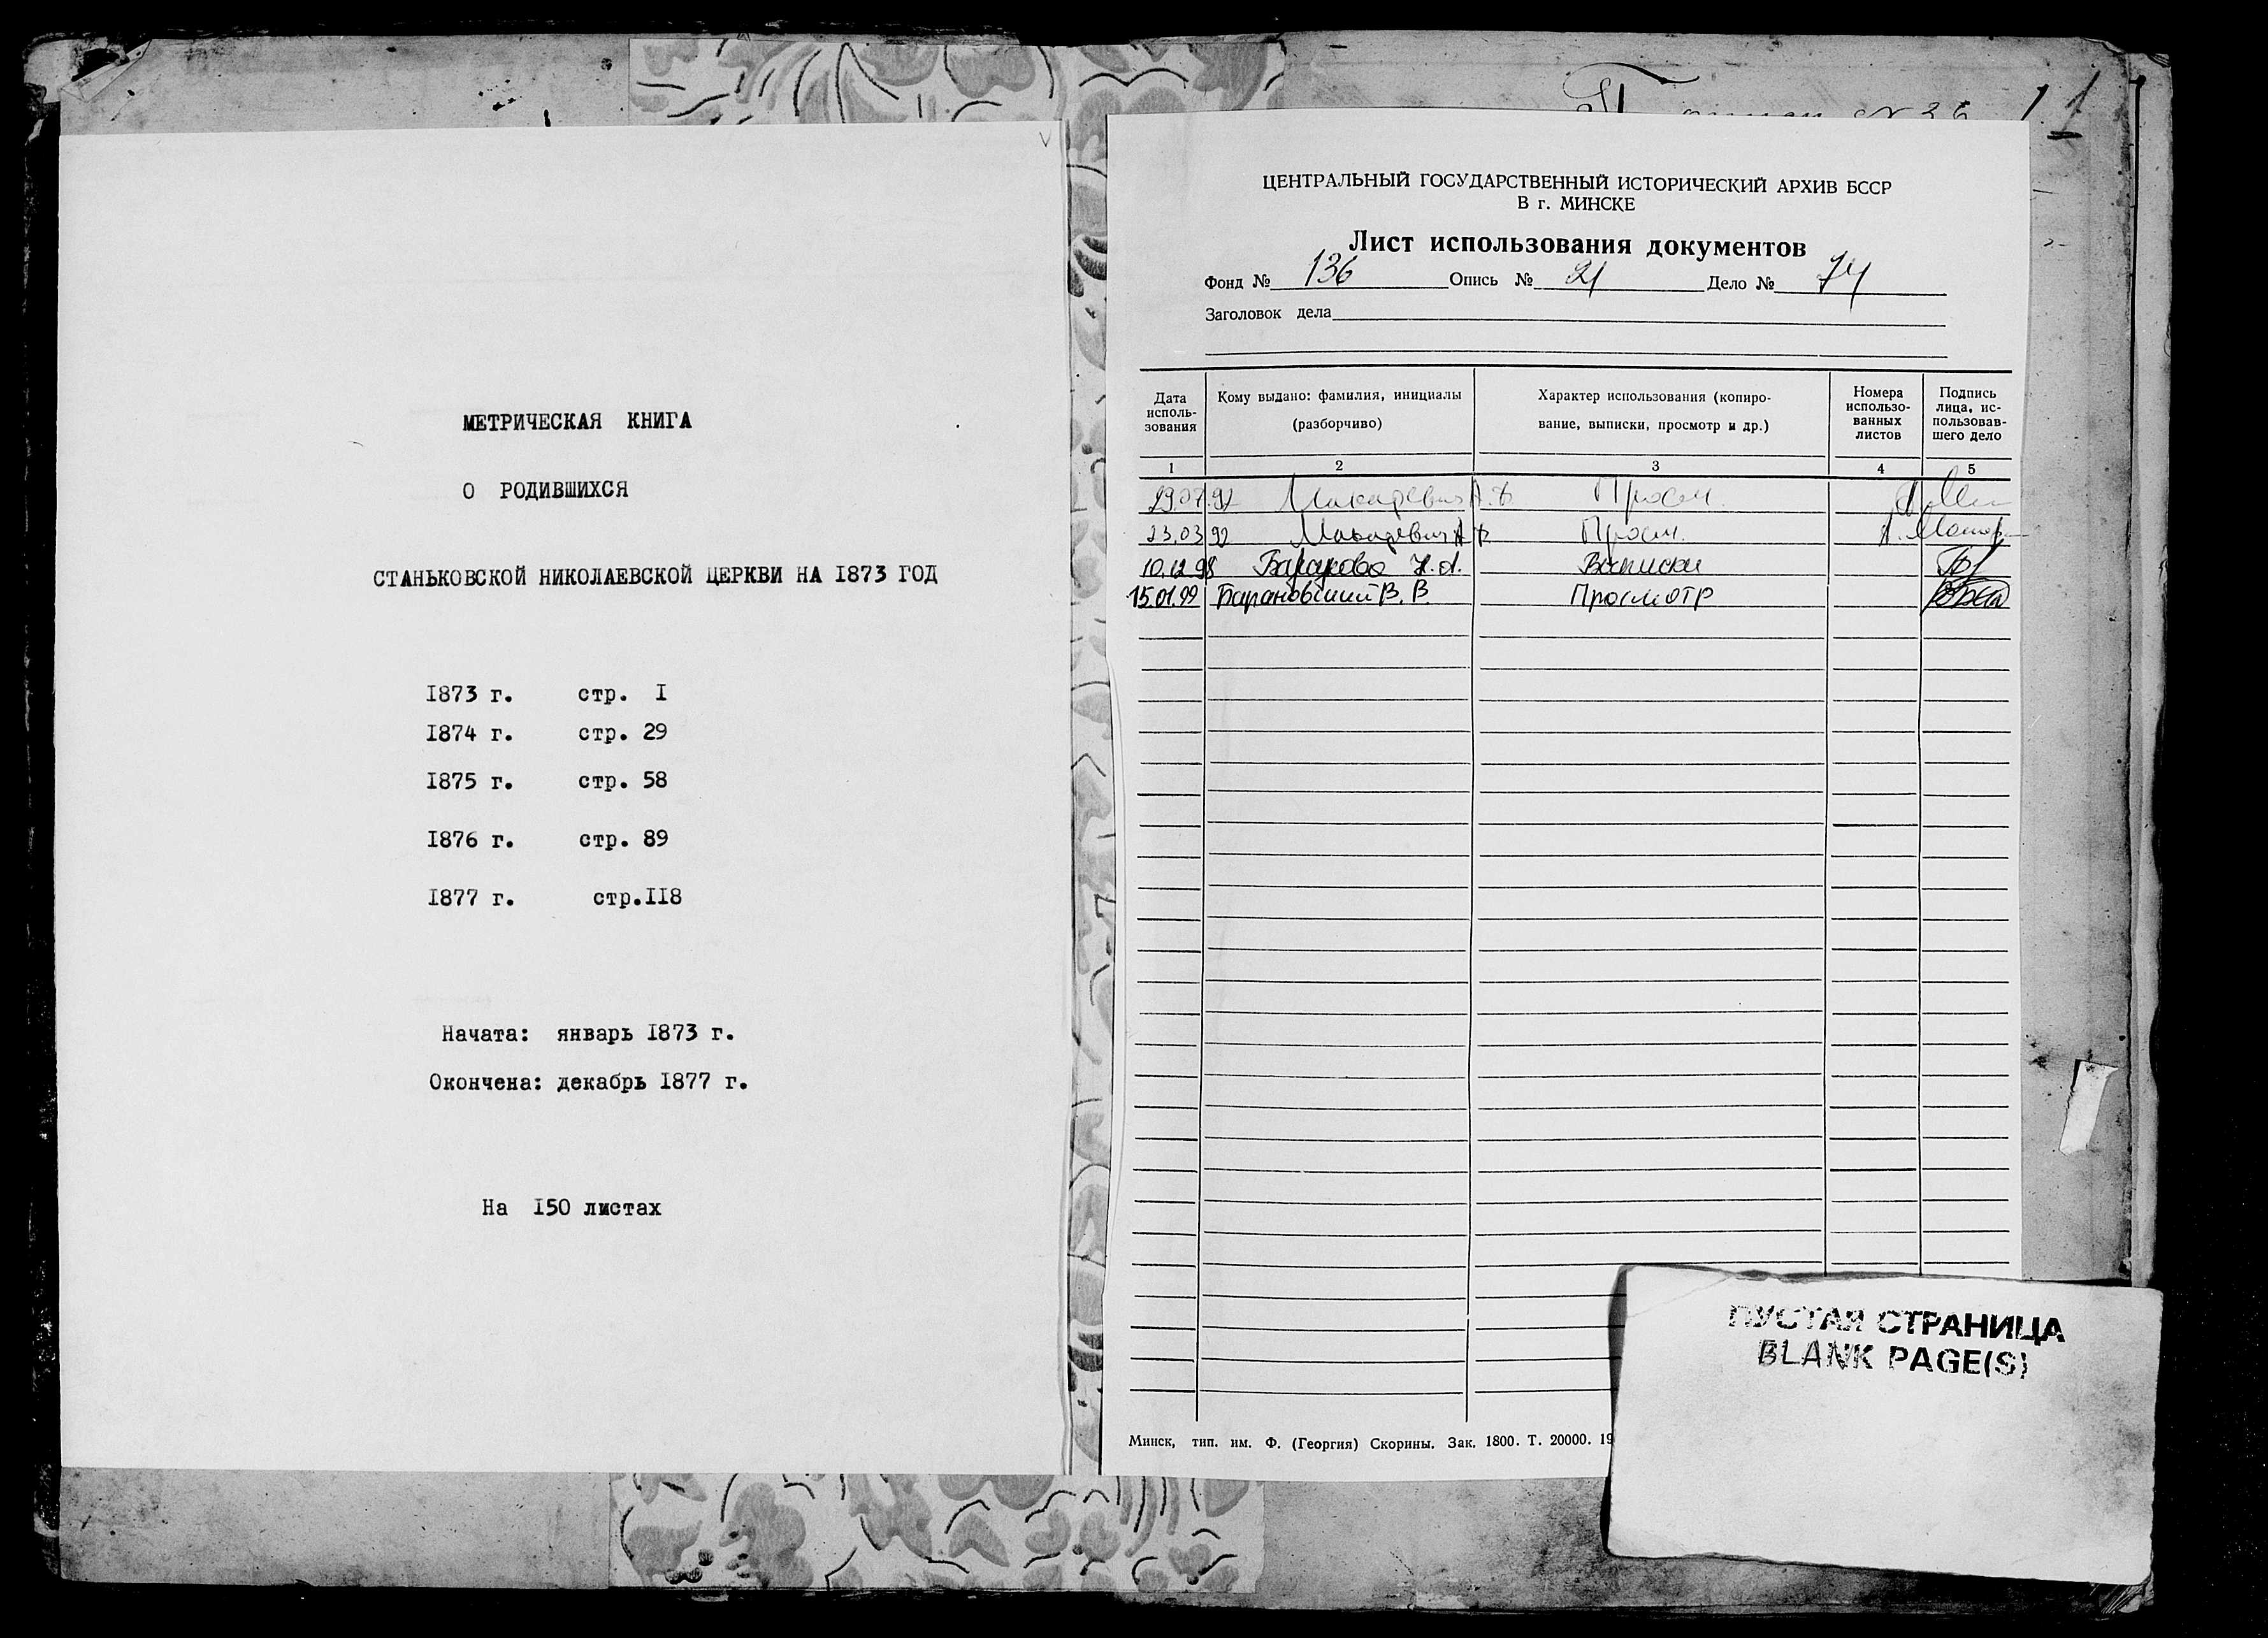 МЕТРИЧЕСКАЯ КНИГА
О РОДИВШИХСЯ
СТАНЬКОВСКОЙ НИКОЛАЕВСКОЙ ЦЕРКВИ НА 1873 ГОД
1873 г. стр. I
1874 г. стр. 29
1875 г. стр. 58
1876 г. стр. 89
1877 г. стр.II8
Начата: январь 1873 г.
Окончена: декабрь 1877 г.
На 150 листах
№ 36 1
ЦЕНТРАЛЬНЫЙ ГОСУДАРСТВЕННЫЙ ИСТОРИЧЕСКИЙ АРХИВ БССР
В г. МИНСКЕ
Лист использования документов
Фонд № 136 Опись № 21 Дело № 74
Заголовок дела
Дата исполь-зования
Кому выдано: фамилия, инициалы (разборчиво)
Характер использования (копиро-вание, выписки, просмотр и др.)
Номера использо-ванных листов
Подпись лица, ис-пользовав-шего дело
1 2 3 4 5
92 Просм.
23.03 92 Просм.
10.12.98 Выписки
15.01.99 Барановский В. В. Просмотр
Минск, тип. им. Ф. (Георгия) Скорины. Зак. 1800. Т. 20000. 19
ПУСТАЯ СТРАНИЦА
BLANK PAGE(S)